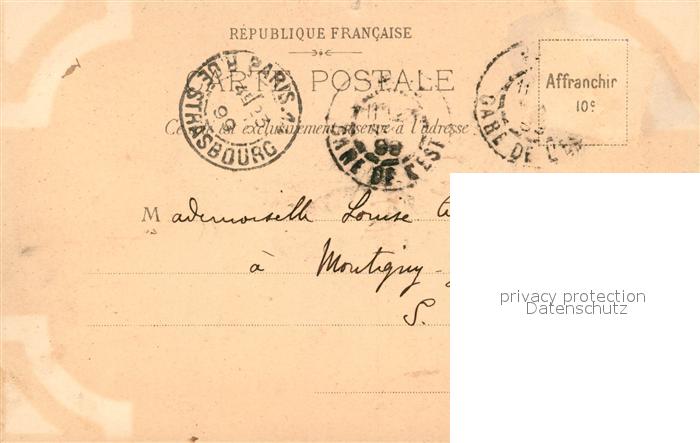 RÉPUBLIQUE FRANÇAISE
CARTE POSTALE
Affranchir
10c
Ce côté est exclusivement réservé à l'adresse
PARIS
R. DE STRASBOURG
99
DE L'EST
99
GARE DE L'EST
Mademoiselle Louise
à Montigny-
S.
privacy protection
Datenschutz